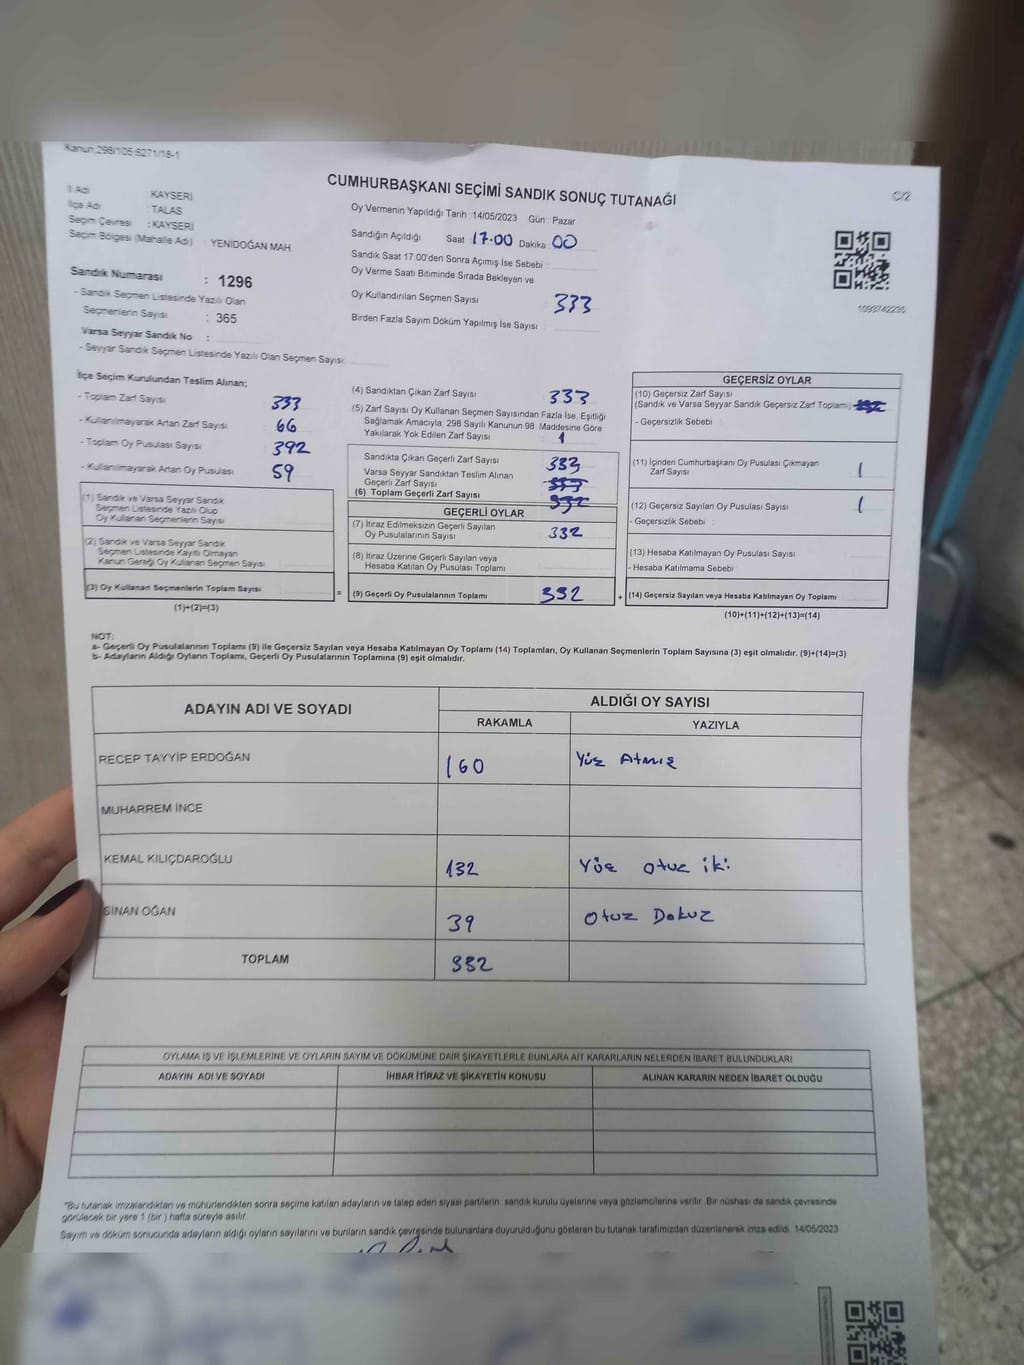 Kanun:298/105,6271/18-1
CUMHURBAŞKANI SEÇİMİ SANDIK SONUÇ TUTANAĞI
C/2
İl Adı KAYSERİ
İlçe Adı : TALAS
Seçim Çevresi : KAYSERİ
Seçim Bölgesi (Mahalle Adı) YENİDOĞAN MAH.
Sandık Numarası : 1296
- Sandık Seçmen Listesinde Yazılı Olan
Seçmenlerin Sayısı : 365
Varsa Seyyar Sandık No :
- Seyyar Sandık Seçmen Listesinde Yazılı Olan Seçmen Sayısı:
Oy Vermenin Yapıldığı Tarih :14/05/2023 Gün Pazar
Sandığın Açıldığı Saat 17.00 Dakika 00
Sandık Saat 17.00'den Sonra Açımış İse Sebebi :
Oy Verme Saati Bitiminde Sırada Bekleyen ve
Oy Kullandırılan Seçmen Sayısı 333
Birden Fazla Sayım Döküm Yapılmış İse Sayısı :
1093742235
İlçe Seçim Kurulundan Teslim Alınan;
- Toplam Zarf Sayısı 333
- Kullanılmayarak Artan Zarf Sayısı 66
- Toplam Oy Pusulası Sayısı 392
- Kullanılmayarak Artan Oy Pusulası 59
(1) Sandık ve Varsa Seyyar Sandık
Seçmen Listesinde Yazılı Olup
Oy Kullanan Seçmenlerin Sayısı
(2) Sandık ve Varsa Seyyar Sandık
Seçmen Listesinde Kayıtlı Olmayan
Kanun Gereği Oy Kullanan Seçmen Sayısı
(3) Oy Kullanan Seçmenlerin Toplam Sayısı
(1)+(2)=(3)
=
(4) Sandıktan Çıkan Zarf Sayısı 333
(5) Zarf Sayısı Oy Kullanan Seçmen Sayısından Fazla İse, Eşitliği
Sağlamak Amacıyla; 298 Sayılı Kanunun 98. Maddesine Göre
Yakılarak Yok Edilen Zarf Sayısı 1
Sandıkta Çıkan Geçerli Zarf Sayısı 333
Varsa Seyyar Sandıktan Teslim Alınan
Geçerli Zarf Sayısı
(6) Toplam Geçerli Zarf Sayısı 332
GEÇERLİ OYLAR
(7) İtiraz Edilmeksizin Geçerli Sayılan
Oy Pusulalarının Sayısı 332
(8) İtiraz Üzerine Geçerli Sayılan veya
Hesaba Katılan Oy Pusulası Toplamı
(9) Geçerli Oy Pusulalarının Toplamı 332
+
GEÇERSİZ OYLAR
(10) Geçersiz Zarf Sayısı
(Sandık ve Varsa Seyyar Sandık Geçersiz Zarf Toplamı)
- Geçersizlik Sebebi
(11) İçinden Cumhurbaşkanı Oy Pusulası Çıkmayan
Zarf Sayısı 1
(12) Geçersiz Sayılan Oy Pusulası Sayısı 1
- Geçersizlik Sebebi
(13) Hesaba Katılmayan Oy Pusulası Sayısı
- Hesaba Katılmama Sebebi
(14) Geçersiz Sayılan veya Hesaba Katılmayan Oy Toplamı
(10)+(11)+(12)+(13)=(14)
NOT:
a- Geçerli Oy Pusulalarının Toplamı (9) ile Geçersiz Sayılan veya Hesaba Katılmayan Oy Toplamı (14) Toplamları, Oy Kullanan Seçmenlerin Toplam Sayısına (3) eşit olmalıdır. (9)+(14)=(3)
b- Adayların Aldığı Oyların Toplamı, Geçerli Oy Pusulalarının Toplamına (9) eşit olmalıdır.
ADAYIN ADI VE SOYADI
ALDIĞI OY SAYISI
RAKAMLA YAZIYLA
RECEP TAYYİP ERDOĞAN 160 Yüz Atmış
MUHARREM İNCE
KEMAL KILIÇDAROĞLU 132 Yüz otuz iki
SİNAN OĞAN 39 Otuz Dokuz
TOPLAM 332
OYLAMA İŞ VE İŞLEMLERİNE VE OYLARIN SAYIM VE DÖKÜMÜNE DAİR ŞİKAYETLERLE BUNLARA AİT KARARLARIN NELERDEN İBARET BULUNDUKLARI
ADAYIN ADI VE SOYADI İHBAR İTİRAZ VE ŞİKAYETİN KONUSU ALINAN KARARIN NEDEN İBARET OLDUĞU
*Bu tutanak imzalandıktan ve mühürlendikten sonra seçime katılan adayların ve talep eden siyasi partilerin sandık kurulu üyelerine veya gözlemcilerine verilir. Bir nüshası da sandık çevresinde
görülecek bir yere 1 (bir ) hafta süreyle asılır.
Sayım ve döküm sonucunda adayların aldığı oyların sayılarını ve bunların sandık çevresinde bulunanlara duyurulduğunu gösteren bu tutanak tarafımızdan düzenlenerek imza edildi. 14/05/2023